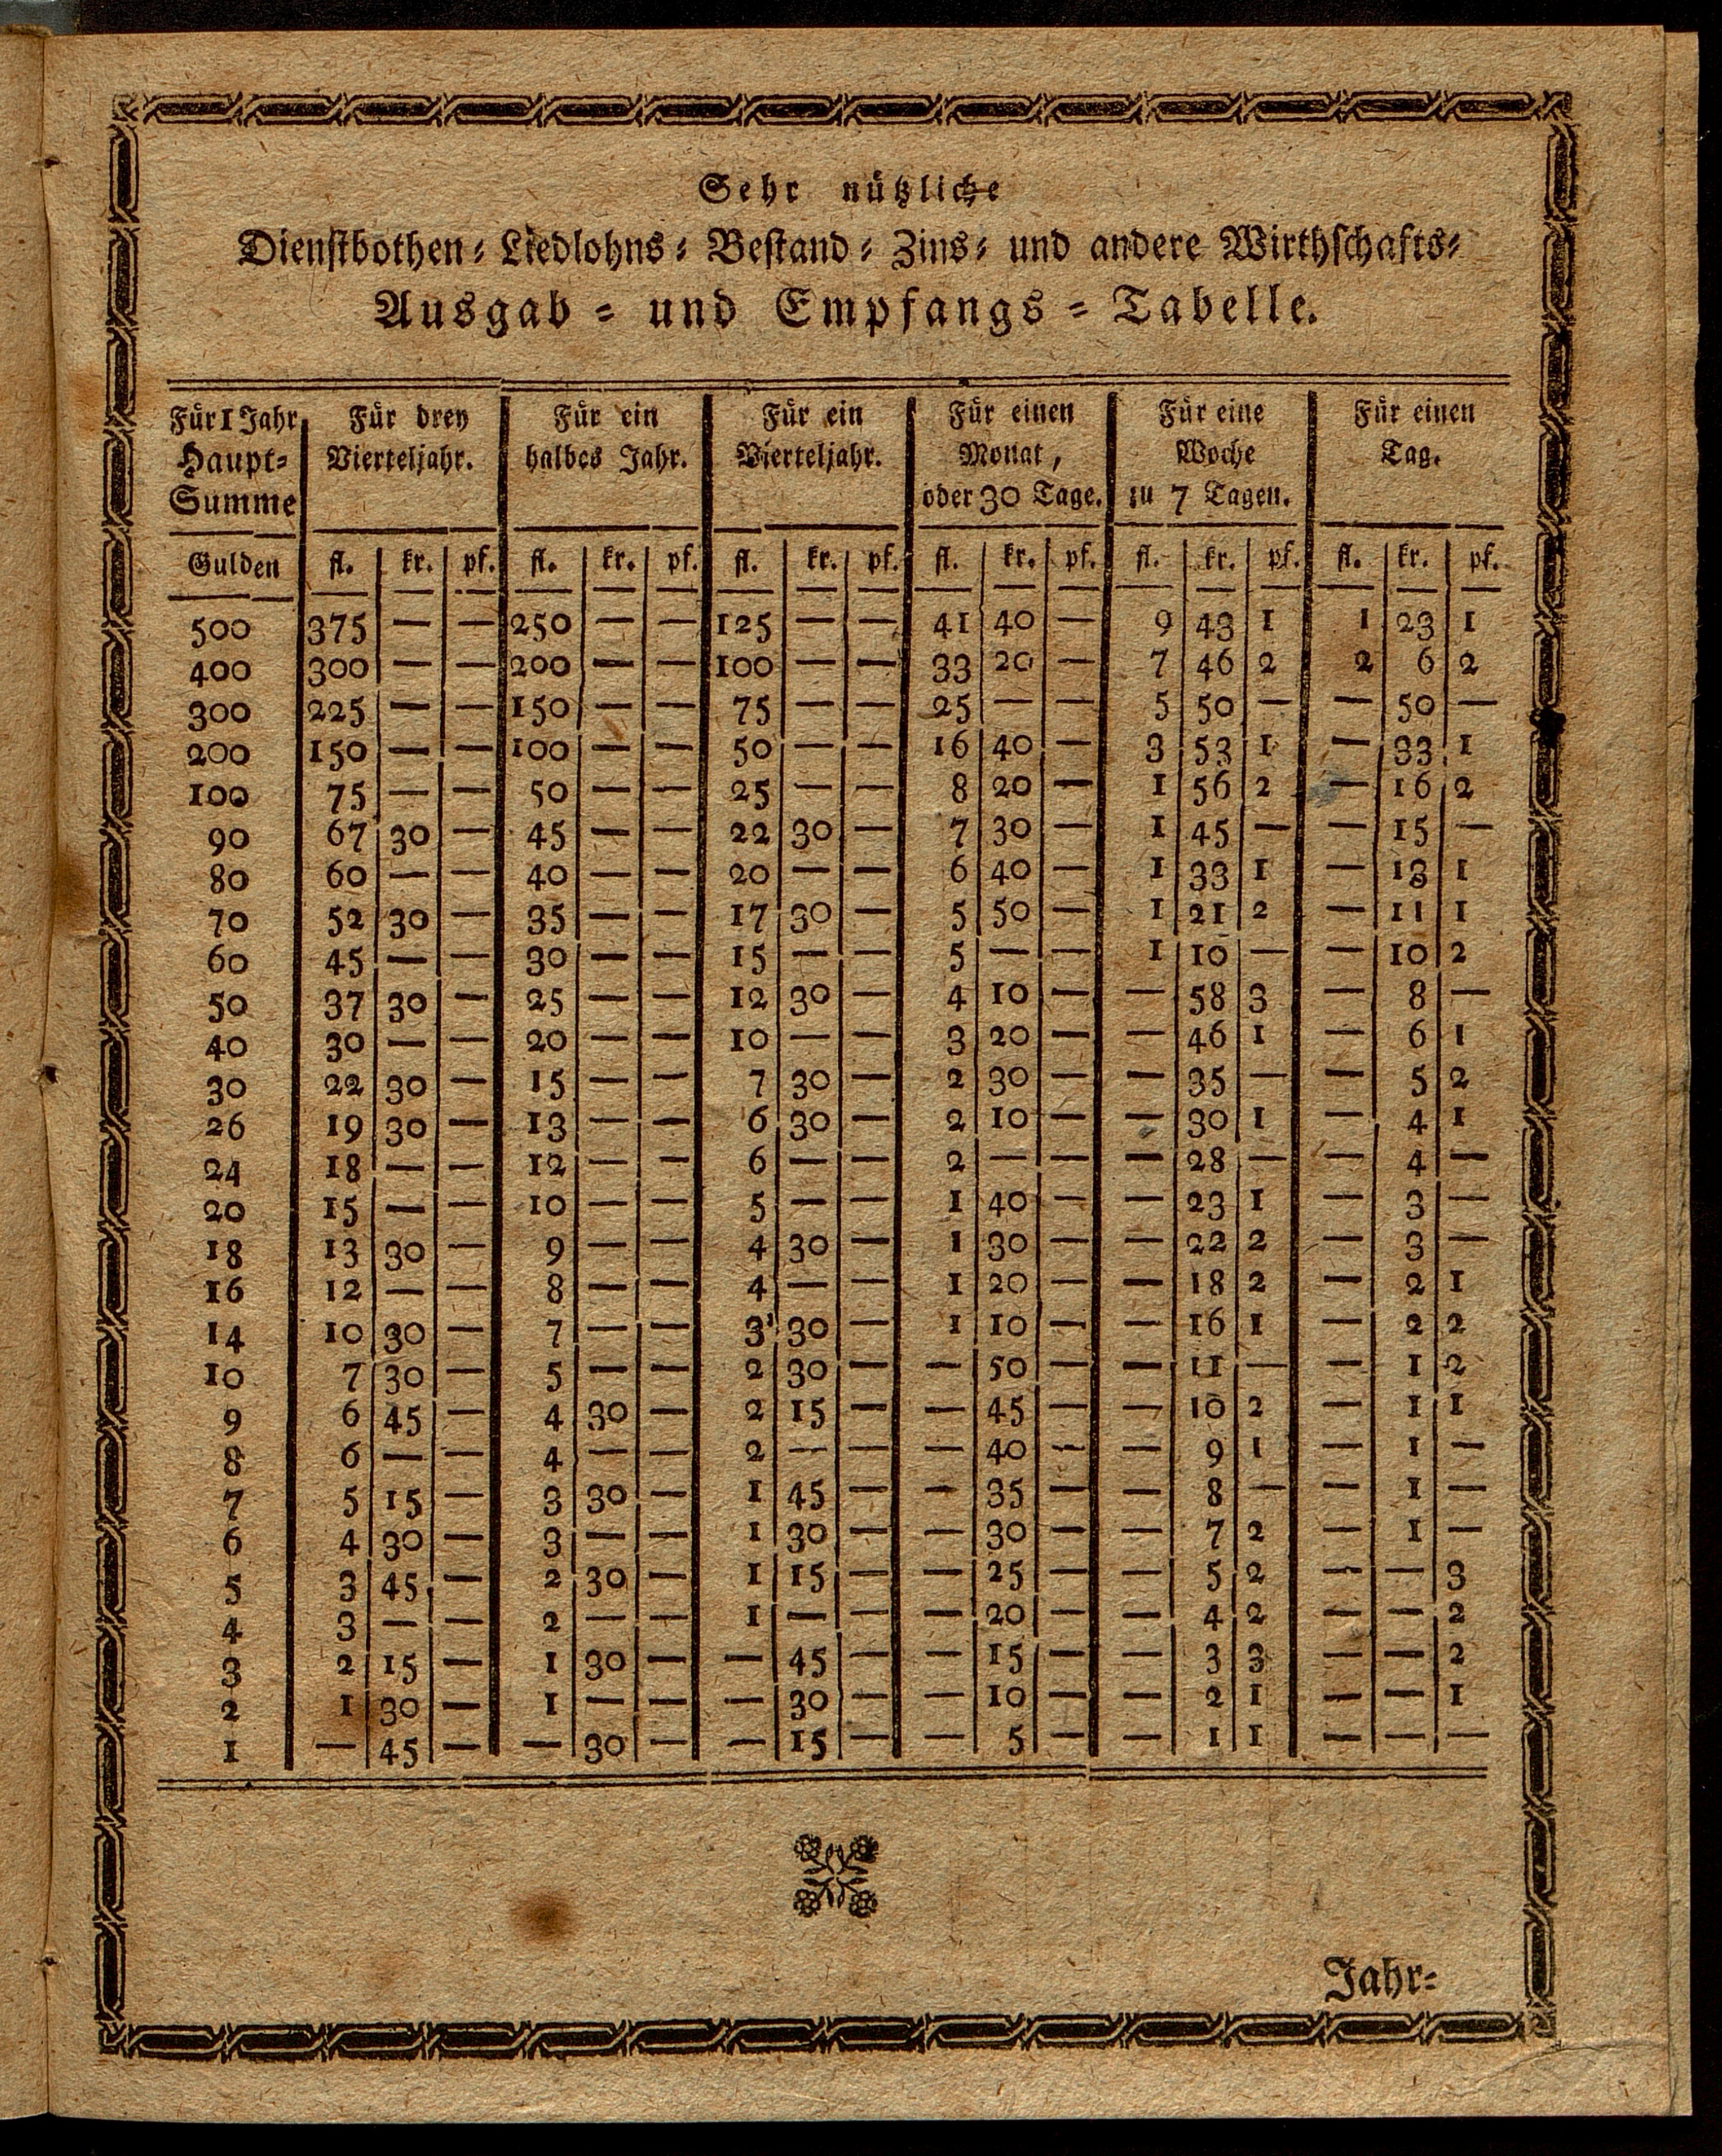 Sehr nützliche
Dienstbothen- Liedlohns- Bestand- Zins- und andere Wirthschafts-
Ausgab- und Empfangs-Tabelle.
Für 1 Jahr Haupt-Summe | Für drey Vierteljahr. | Für ein halbes Jahr. | Für ein Vierteljahr. | Für einen Monat, oder 30 Tage. | Für eine Woche zu 7 Tagen. | Für einen Tag.
Gulden | fl. | kr. | pf. | fl. | kr. | pf. | fl. | kr. | pf. | fl. | kr. | pf. | fl. | kr. | pf. | fl. | kr. | pf.
500 | 375 | — | — | 250 | — | — | 125 | — | — | 41 | 40 | — | 9 | 43 | 1 | 1 | 23 | 1
400 | 300 | — | — | 200 | — | — | 100 | — | — | 33 | 20 | — | 7 | 46 | 2 | 2 | 6 | 2
300 | 225 | — | — | 150 | — | — | 75 | — | — | 25 | — | — | 5 | 50 | — | — | 50 | —
200 | 150 | — | — | 100 | — | — | 50 | — | — | 16 | 40 | — | 3 | 53 | 1 | — | 33 | 1
100 | 75 | — | — | 50 | — | — | 25 | — | — | 8 | 20 | — | 1 | 56 | 2 | — | 16 | 2
90 | 67 | 30 | — | 45 | — | — | 22 | 30 | — | 7 | 30 | — | 1 | 45 | — | — | 15 | —
80 | 60 | — | — | 40 | — | — | 20 | — | — | 6 | 40 | — | 1 | 33 | 1 | — | 13 | 1
70 | 52 | 30 | — | 35 | — | — | 17 | 30 | — | 5 | 50 | — | 1 | 21 | 2 | — | 11 | 1
60 | 45 | — | — | 30 | — | — | 15 | — | — | 5 | — | — | 1 | 10 | — | — | 10 | 2
50 | 37 | 30 | — | 25 | — | — | 12 | 30 | — | 4 | 10 | — | — | 58 | 3 | — | 8 | —
40 | 30 | — | — | 20 | — | — | 10 | — | — | 3 | 20 | — | — | 46 | 1 | — | 6 | 1
30 | 22 | 30 | — | 15 | — | — | 7 | 30 | — | 2 | 30 | — | — | 35 | — | — | 5 | 2
26 | 19 | 30 | — | 13 | — | — | 6 | 30 | — | 2 | 10 | — | — | 30 | 1 | — | 4 | 1
24 | 18 | — | — | 12 | — | — | 6 | — | — | 2 | — | — | — | 28 | — | — | 4 | —
20 | 15 | — | — | 10 | — | — | 5 | — | — | 1 | 40 | — | — | 23 | 1 | — | 3 | —
18 | 13 | 30 | — | 9 | — | — | 4 | 30 | — | 1 | 30 | — | — | 22 | 2 | — | 3 | —
16 | 12 | — | — | 8 | — | — | 4 | — | — | 1 | 20 | — | — | 18 | 2 | — | 2 | 1
14 | 10 | 30 | — | 7 | — | — | 3 | 30 | — | 1 | 10 | — | — | 16 | 1 | — | 2 | 2
10 | 7 | 30 | — | 5 | — | — | 2 | 30 | — | — | 50 | — | — | 11 | — | — | 1 | 2
9 | 6 | 45 | — | 4 | 30 | — | 2 | 15 | — | — | 45 | — | — | 10 | 2 | — | 1 | 1
8 | 6 | — | — | 4 | — | — | 2 | — | — | — | 40 | — | — | 9 | 1 | — | 1 | —
7 | 5 | 15 | — | 3 | 30 | — | 1 | 45 | — | — | 35 | — | — | 8 | — | — | 1 | —
6 | 4 | 30 | — | 3 | — | — | 1 | 30 | — | — | 30 | — | — | 7 | 2 | — | 1 | —
5 | 3 | 45 | — | 2 | 30 | — | 1 | 15 | — | — | 25 | — | — | 5 | 2 | — | — | 3
4 | 3 | — | — | 2 | — | — | 1 | — | — | — | 20 | — | — | 4 | 2 | — | — | 2
3 | 2 | 15 | — | 1 | 30 | — | — | 45 | — | — | 15 | — | — | 3 | 3 | — | — | 2
2 | 1 | 30 | — | 1 | — | — | — | 30 | — | — | 10 | — | — | 2 | 1 | — | — | 1
1 | — | 45 | — | — | 30 | — | — | 15 | — | — | 5 | — | — | 1 | 1 | — | — | —
Jahr-